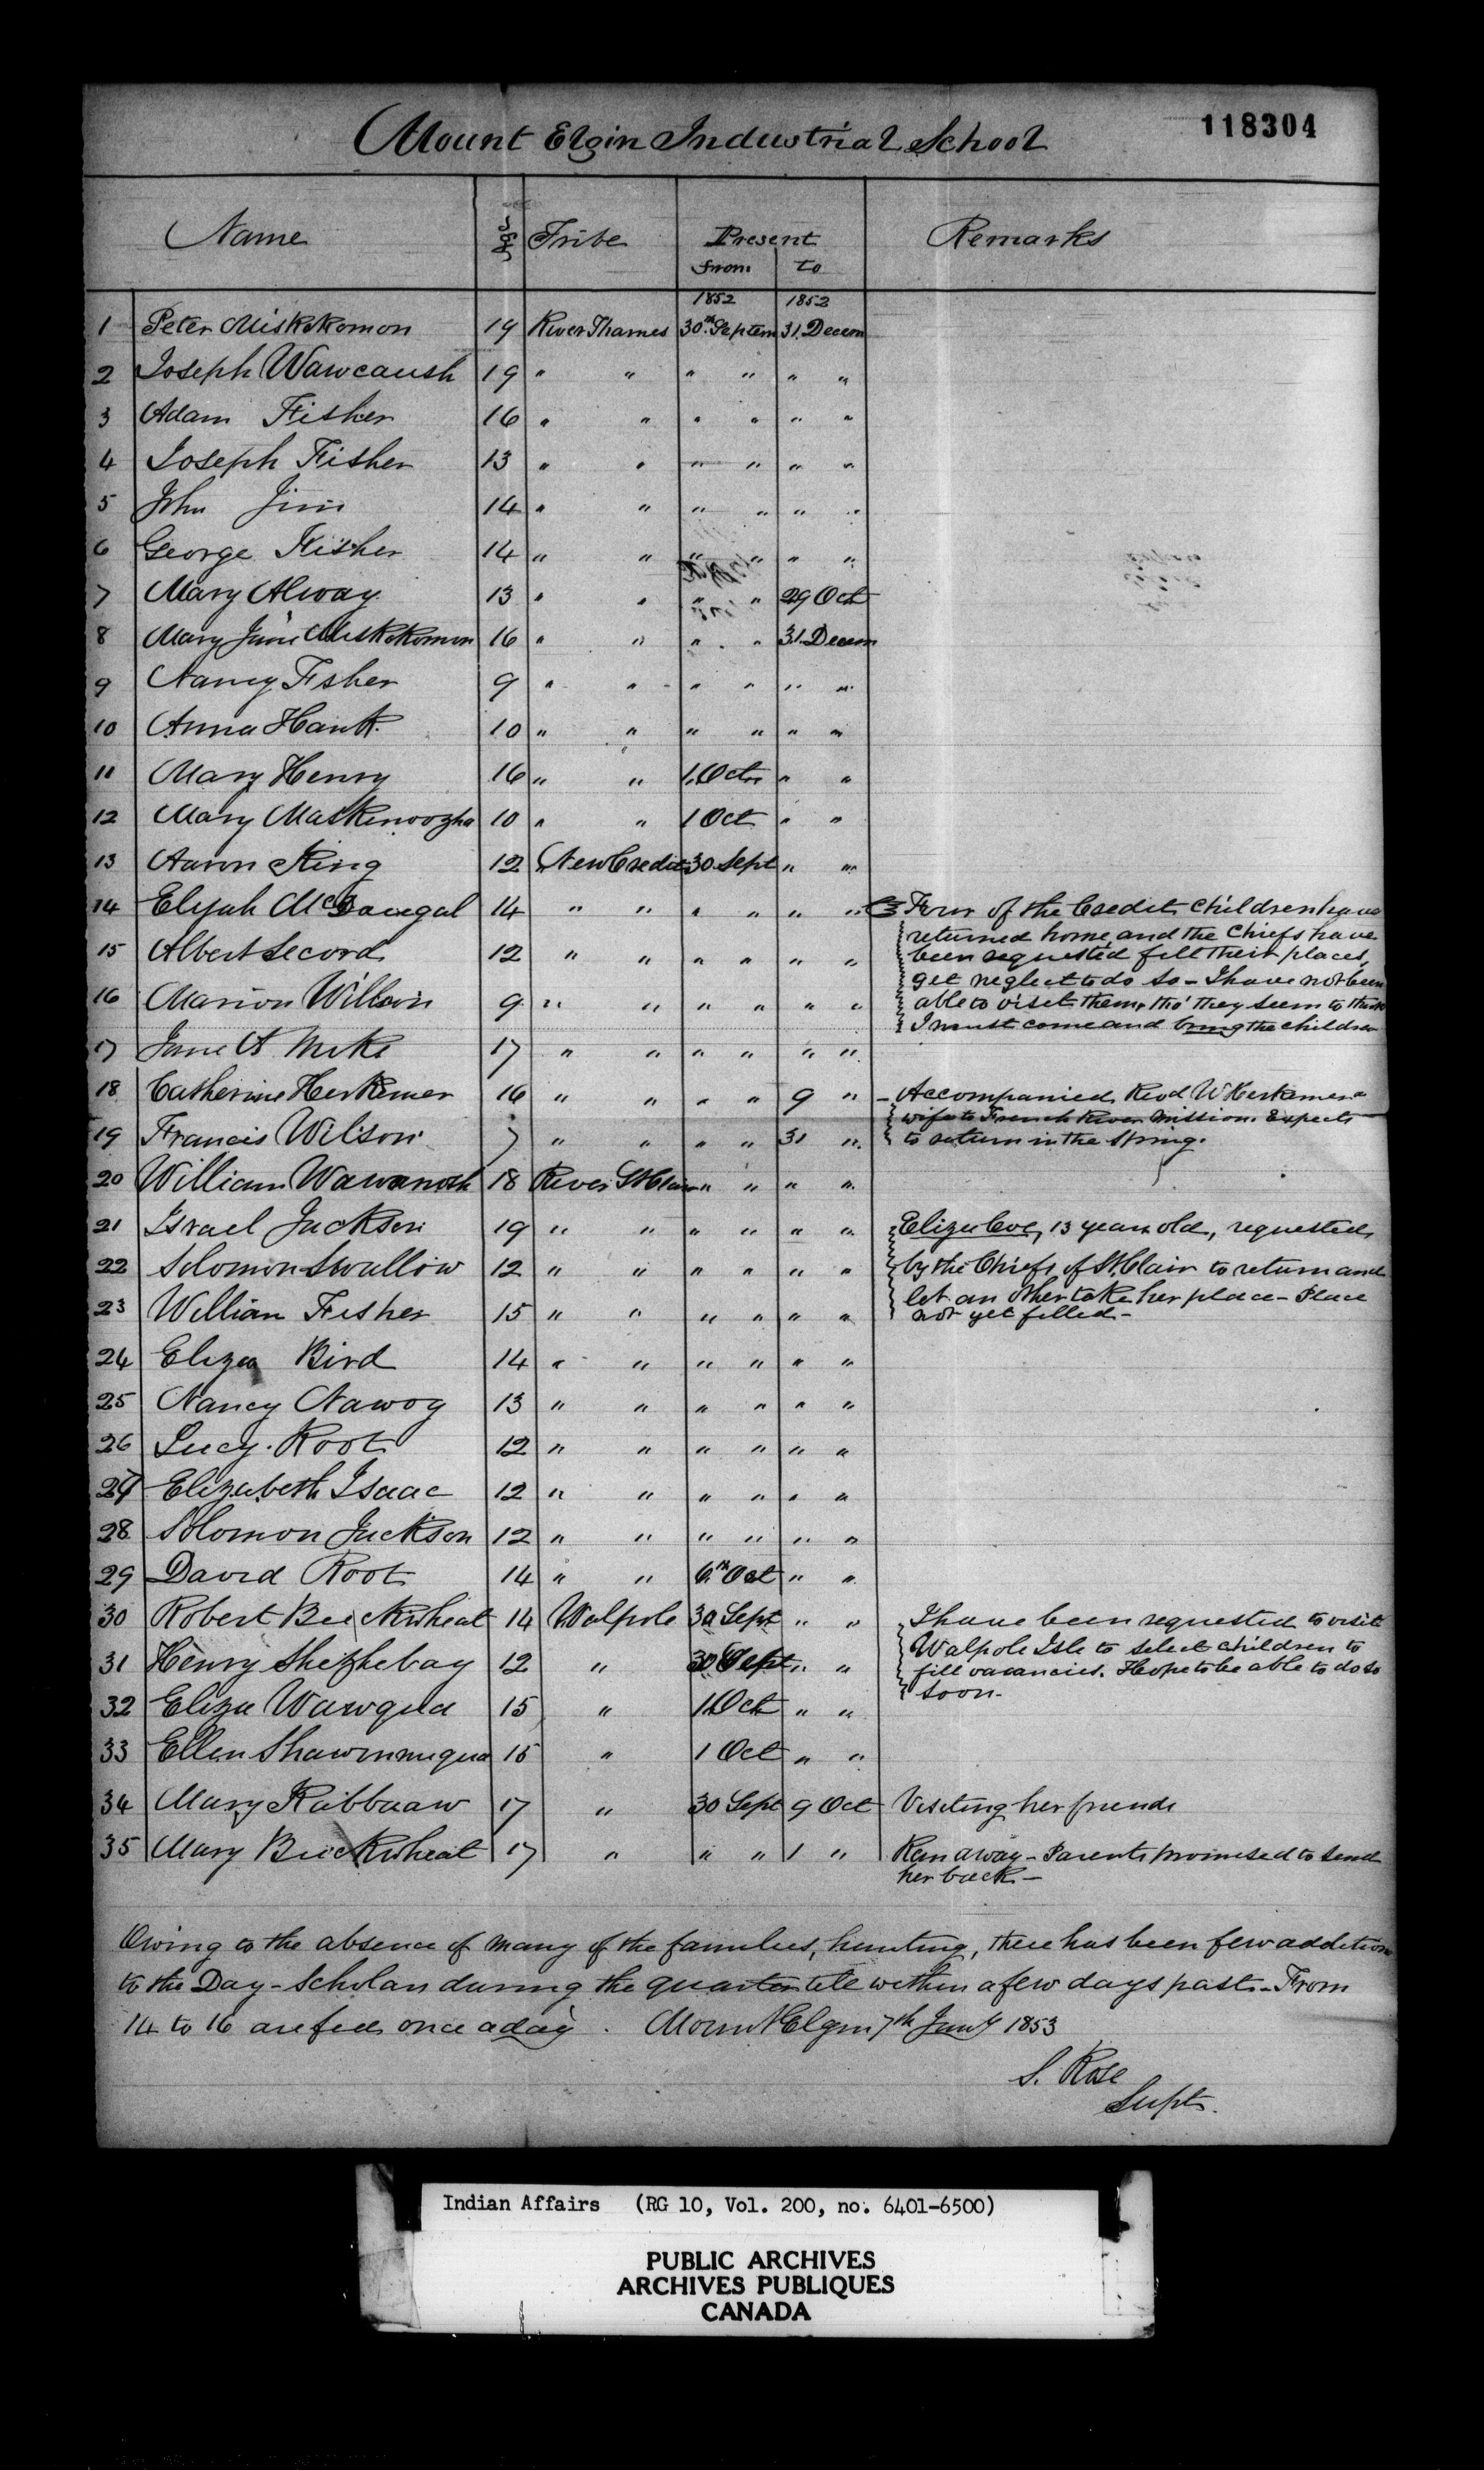 Mount Elgin Industrial School
118304
Name Age Tribe Present Remarks
from to
1852 1852
1 Peter Miskokomon 19 River Thames 30th Septem 31. Decem
2 Joseph Wawcaush 19 " " " " " "
3 Adam Fisher 16 " " " " " "
4 Joseph Fisher 13 " " " " " "
5 John Jim 14 " " " " " "
6 George Fisher 14 " " " " " "
7 Mary Alway 13 " " " " 29 Oct
8 Mary Jane Miskokomon 16 " " " " 31. Decem
9 Nancy Fisher 9 " " " " " "
10 Anna Hank 10 " " " " " "
11 Mary Henry 16 " " 1. Oct " "
12 Mary Maskenoozha 10 " " 1 Oct " "
13 Aaron King 12 New Credit 30 Sept " "
14 Elijah McDougal 14 " " " " " "
15 Albert Secord 12 " " " " " "
16 Marion Willson 9 " " " " " "
17 Jane A Mike 17 " " " " " "
18 Catherine Herkimer 16 " " " " 9 "
19 Francis Wilson 7 " " " " 31 "
20 William Wawanosh 18 River St Clair " " " "
21 Israel Jackson 19 " " " " " "
22 Solomon Swallow 12 " " " " " "
23 William Fisher 15 " " " " " "
24 Eliza Bird 14 " " " " " "
25 Nancy Nawog 13 " " " " " "
26 Lucy Root 12 " " " " " "
27 Elizabeth Isaac 12 " " " " " "
28 Solomon Jackson 12 " " " " " "
29 David Root 14 " " 6th Oct " "
30 Robert Buckwheat 14 Walpole 30 Sept " "
31 Henry Shezhebay 12 " 30 Sept " "
32 Eliza Wawqua 15 " 1. Oct " "
33 Ellen Shawinuqua 15 " 1 Oct " "
34 Mary Kabbaaw 17 " 30 Sept 9 Oct Visiting her friends
35 Mary Buckwheat 17 " " " 1 " Ran away - Parents promised to send
her back -
Four of the Credit children have
returned home, and the Chiefs have
been requested fill their places,
yet neglect to do so - I have not been
able to visit them, tho' they seem to think
I must come and bring the children
- Accompanied Revd W Herkimer &
wife to French River Mission. Expects
to return in the Spring.
Eliza Coe, 13 years old, requested
by the Chiefs of St. Clair to return and
let an other take her place - Place
not yet filled -
I have been requested to visit
Walpole Isle to select children to
fill vacancies. Hope to be able to do so
soon -
Owing to the absence of many of the families, hunting, there has been few additions
to the Day-Scholars during the quarter till within a few days past. - From
14 to 16 are fed once a day. Mount Elgin 7th Jany 1853
S. Rose
Supt.
Indian Affairs (RG 10, Vol. 200, no. 6401-6500)
PUBLIC ARCHIVES
ARCHIVES PUBLIQUES
CANADA